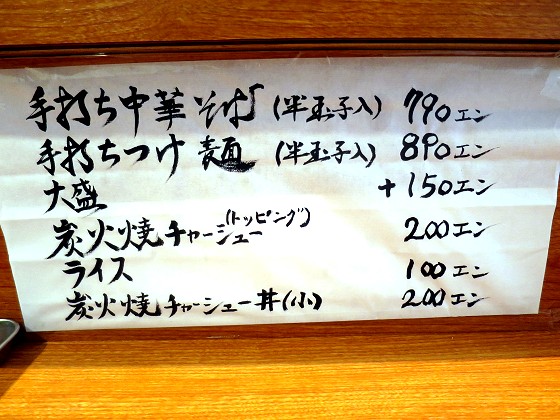 手打ち中華そば (半玉子入) 790エン
手打ちつけ麺 (半玉子入) 890エン
大盛 +150エン
炭火焼チャーシュー(トッピング) 200エン
ライス 100エン
炭火焼チャーシュー丼(小) 200エン